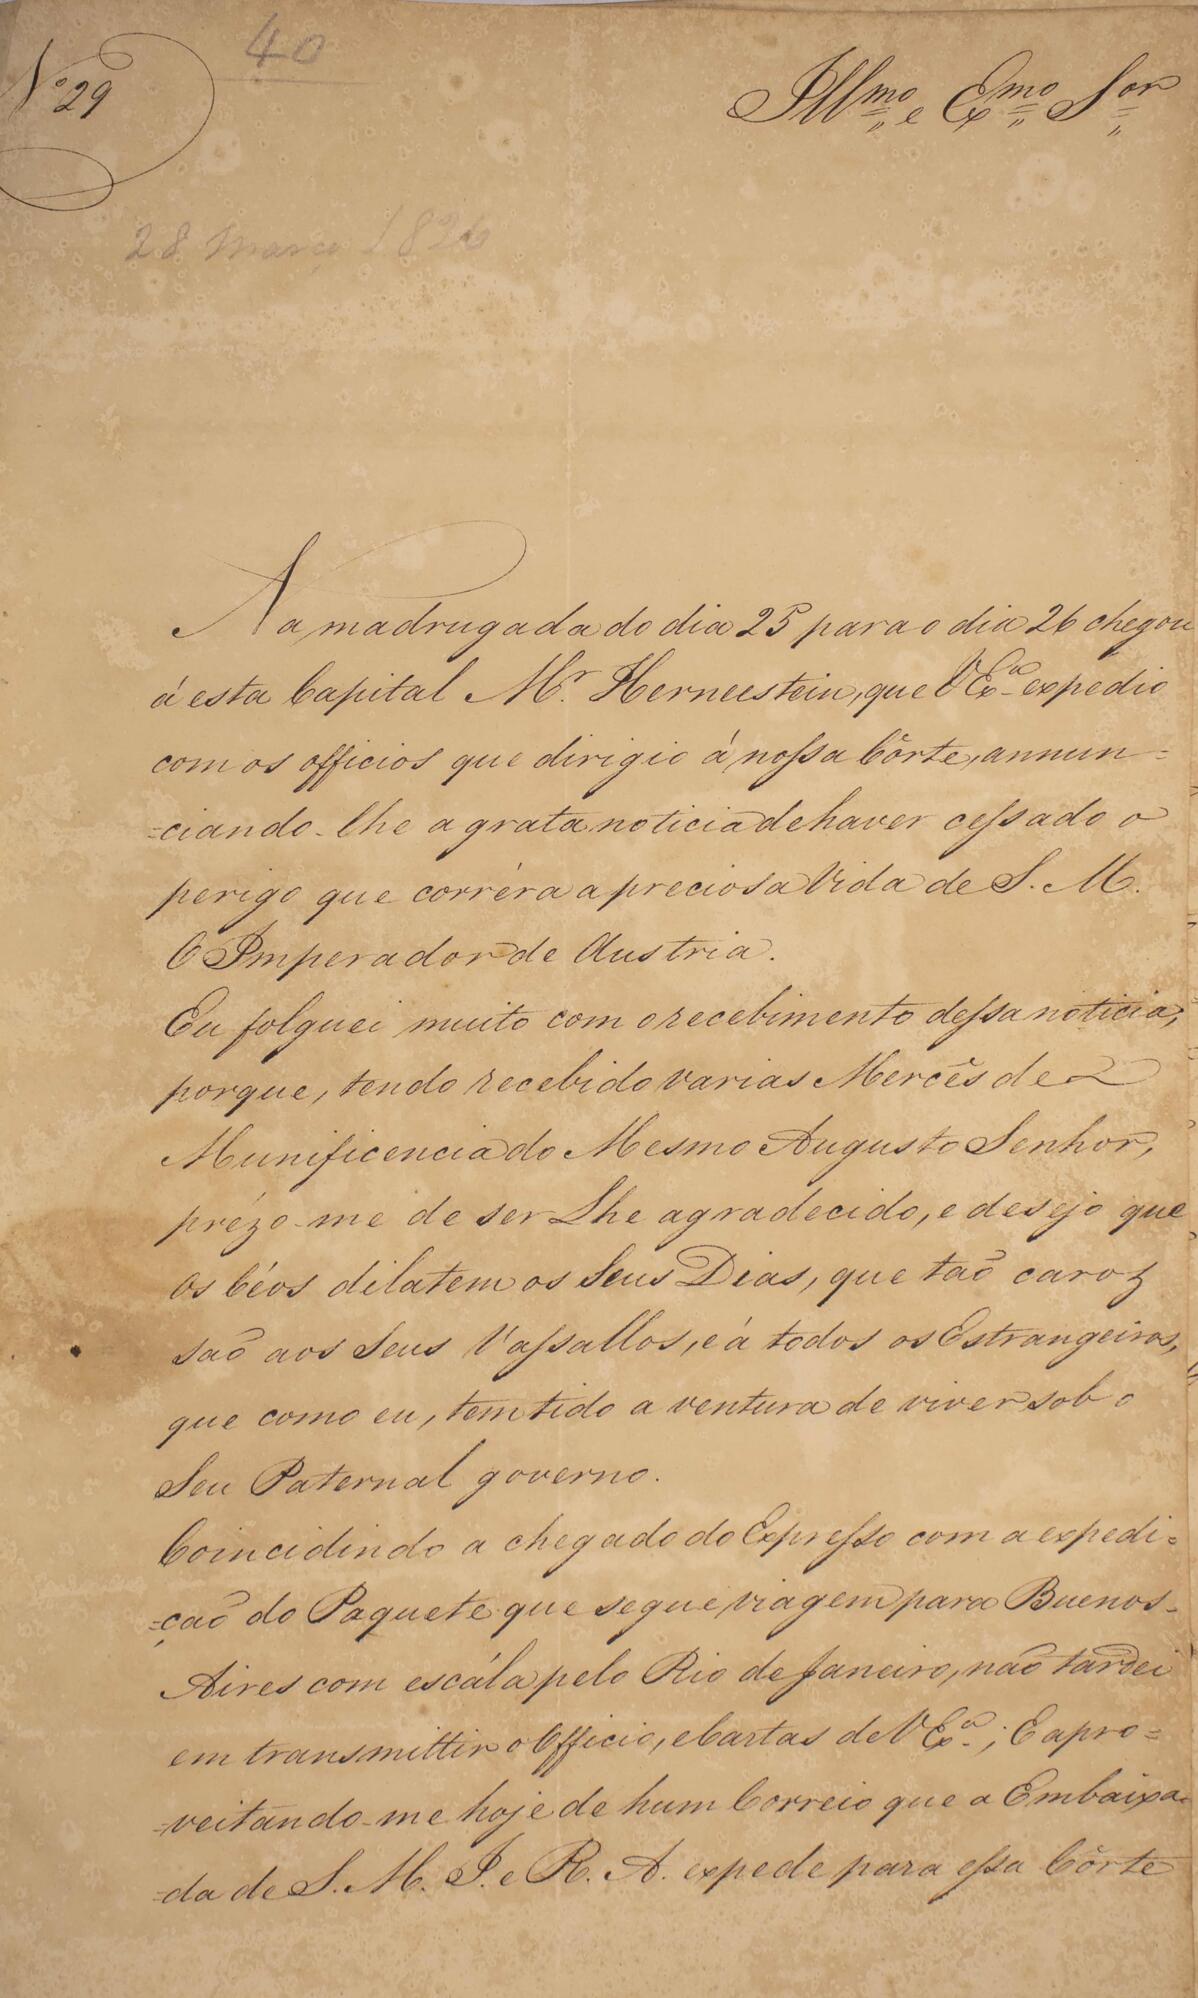 40
Nº 29
Illmo e Exmo Sor
28 Março 1826
Na madrugada do dia 25 para o dia 26 chegou
á esta Capital Mr. Herneestein, que VExa expedio
com os officios que dirigio á nossa Côrte, annun=
=ciando-lhe a grata noticia de haver cessado o
perigo que corrêra a preciosa Vida de S. M.
O Imperador de Austria.
Eu folguei muito com o recebimento dessa noticia,
porque, tendo recebido varias Mercês de
Munificencia do Mesmo Augusto Senhor,
prézo-me de ser Lhe agradecido, e desejo que
os Céos dilatem os Seus Dias, que taõ caros
saõ aos Seus Vassallos, e á todos os Estrangeiros,
que como eu, tem tido a ventura de viver sob o
Seu Paternal governo.
Coincidindo a chegado do Expresso com a expedi=
=çaõ do Paquete que segue viagem para Buenos-
Aires com escála pelo Rio de Janeiro, naõ tardei
em transmittir o Officio, e Cartas de VExa.; E apro=
=veitando-me hoje de hum Correio que a Embaixa=
=da de S. M. I. e R. A. expede para essa Côrte